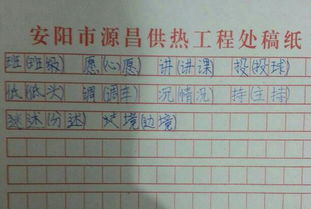 安阳市源昌供热工程处稿纸
班(班级) 愿(心愿) 讲(讲课) 投(投球)
低(低头) 调(调车) 沉(情况) 持(主持)
境(边境)